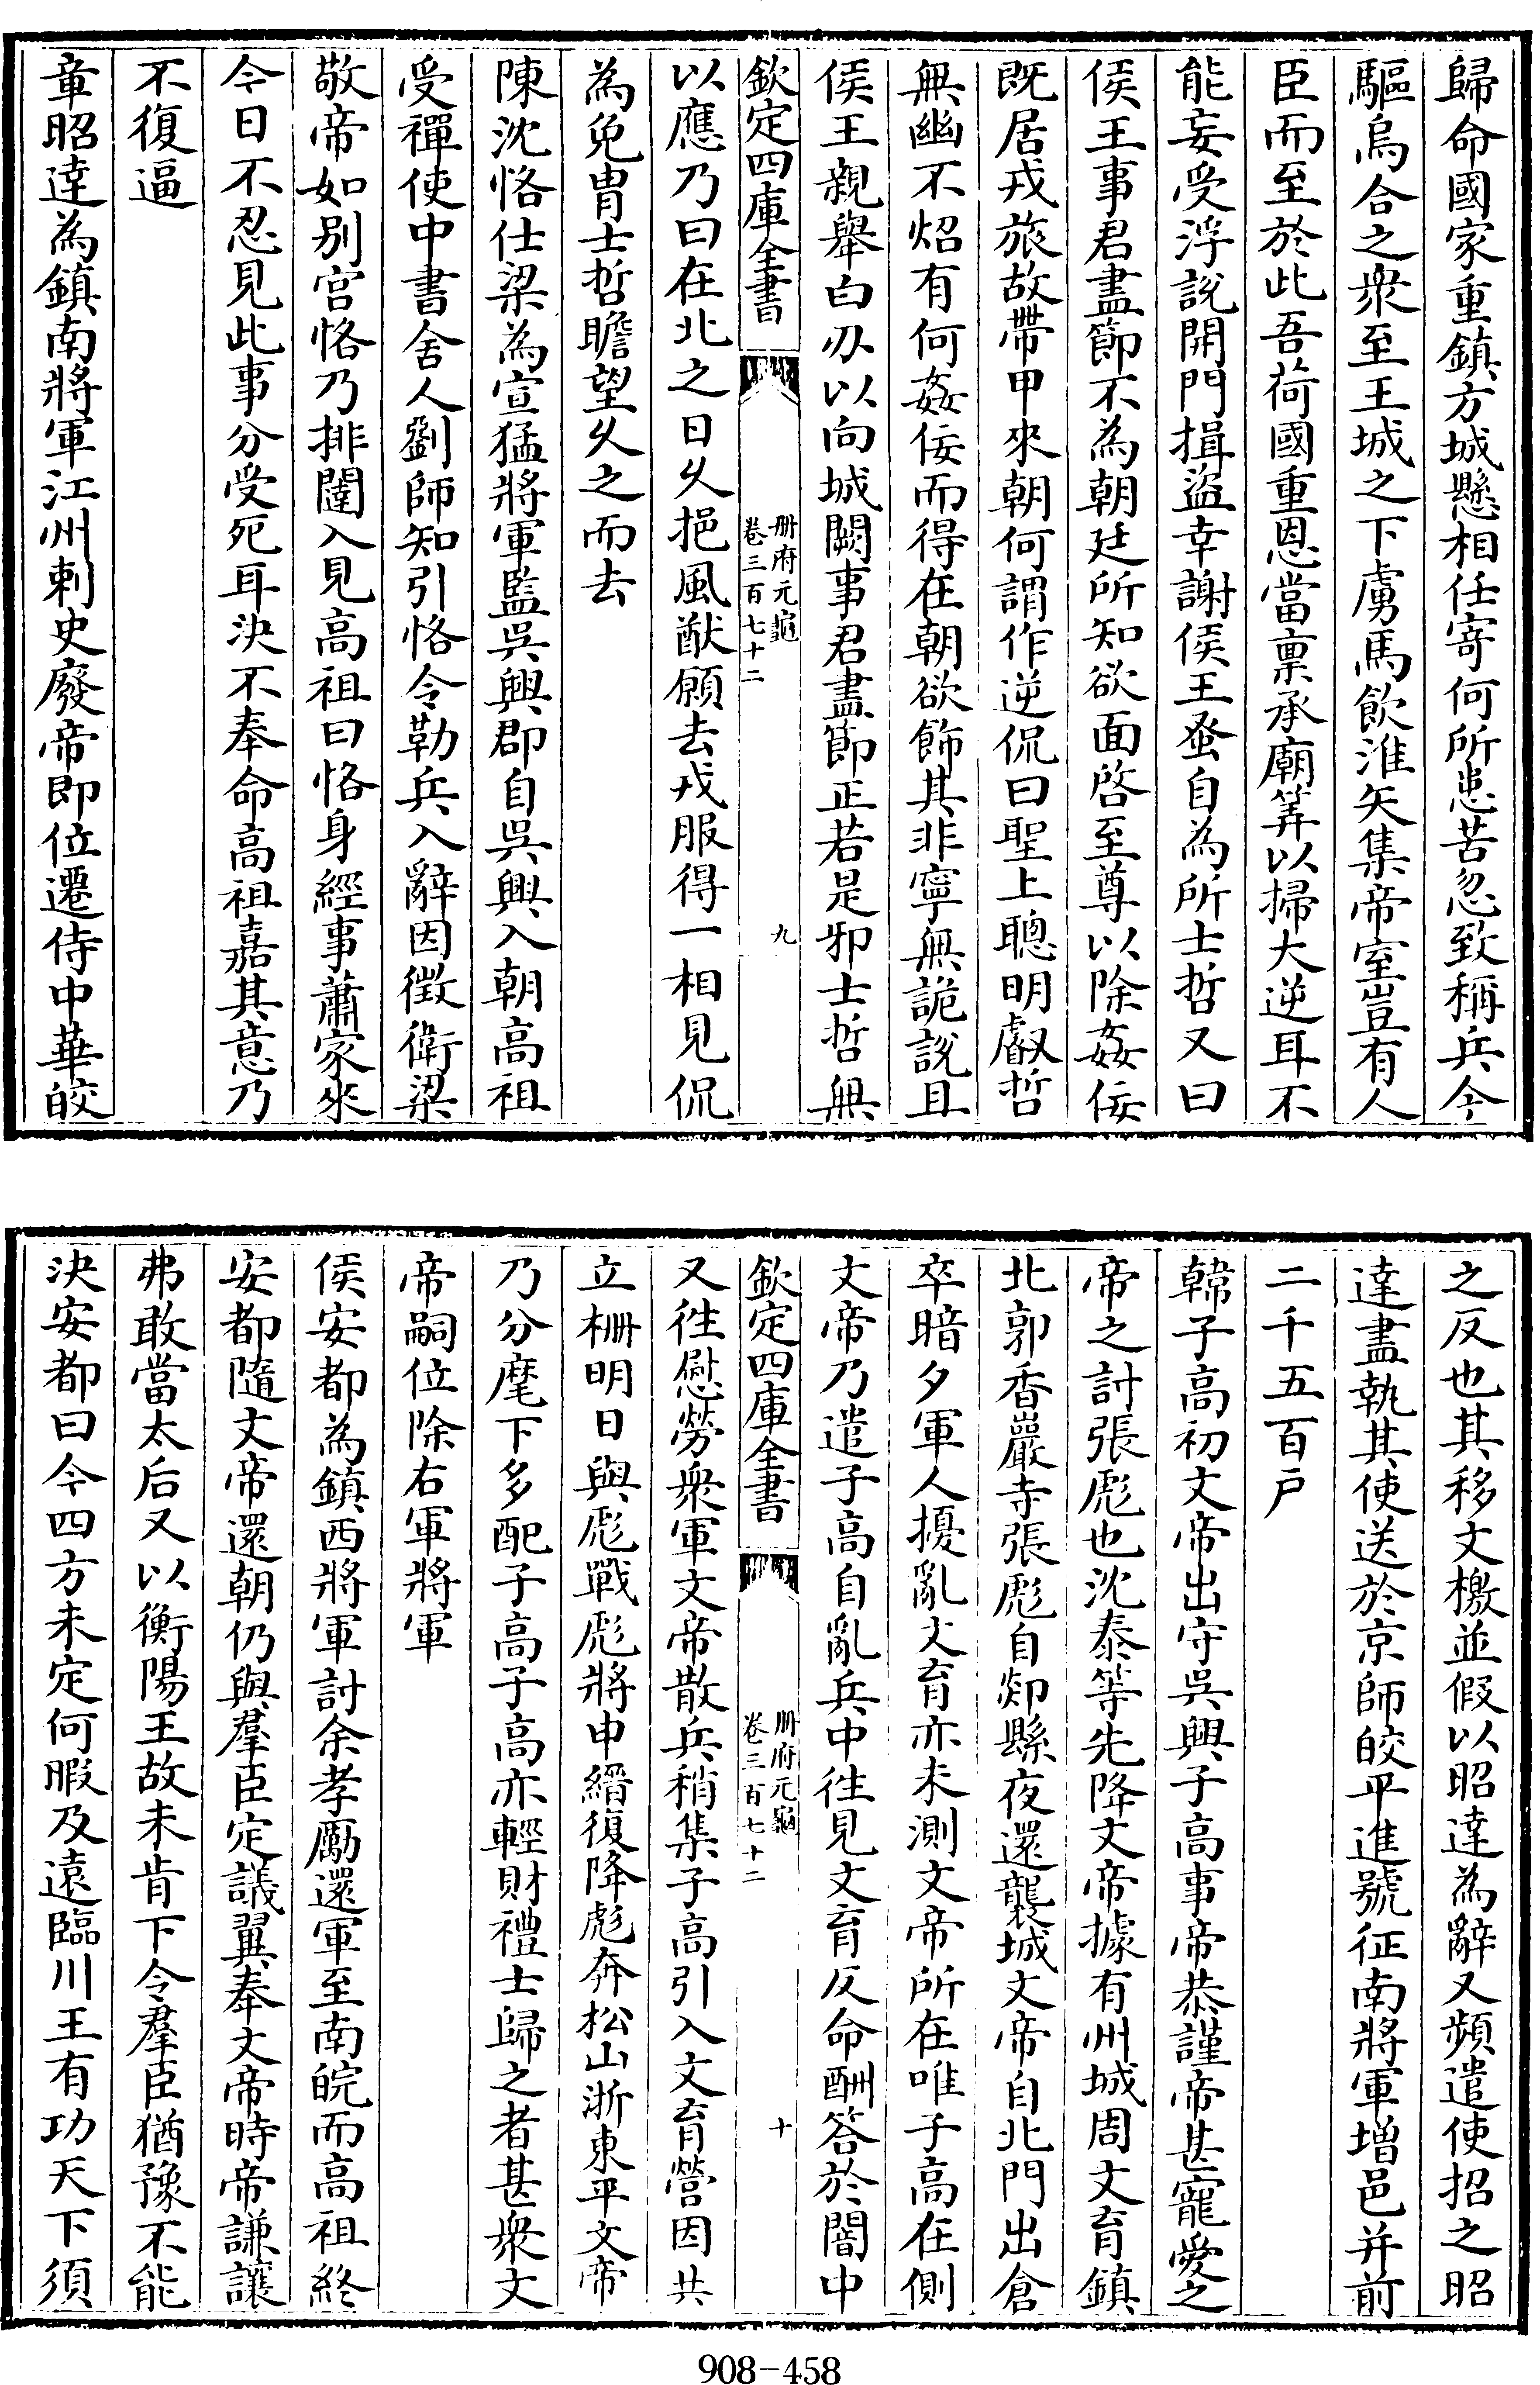 歸命國家重鎮方城懸相任寄何所患苦忽致稱兵今
驅烏合之衆至王城之下虜馬飲淮矢集帝室豈有人
臣而至於此吾荷國重恩當稟承廟筭以掃大逆耳不
能妄受浮說開門揖盜幸謝侯王蚤自為所士哲又曰
侯王事君盡節不為朝廷所知欲面啓至尊以除姦佞
既居戎旅故帶甲來朝何謂作逆侃曰聖上聰明叡哲
無幽不炤有何姦佞而得在朝欲飾其非寧無詭說且
侯王親舉白刃以向城闕事君盡節正若是邪士哲無
欽定四庫全書
冊府元龜
卷三百七十二
九
以應乃曰在北之日久挹風猷願去戎服得一相見侃
為免胄士哲瞻望久之而去
陳沈恪仕梁為宣猛將軍監吳興郡自吳興入朝高祖
受禪使中書舍人劉師知引恪令勒兵入辭因徵衛梁
敬帝如别宫恪乃排闥入見高祖曰恪身經事蕭家來
今日不忍見此事分受死耳決不奉命高祖嘉其意乃
不復逼
章昭達為鎮南將軍江州刺史廢帝即位遷侍中華皎
之反也其移文檄並假以昭達為辭又頻遣使招之昭
達盡執其使送於京師皎平進號征南將軍增邑并前
二千五百户
韓子高初文帝出守吳興子高事帝恭謹帝甚寵愛之
帝之討張彪也沈泰等先降文帝據有州城周文育鎮
北郭香巖寺張彪自剡縣夜還襲城文帝自北門出倉
卒暗夕軍人擾亂文育亦未測文帝所在唯子高在側
文帝乃遣子高自亂兵中徃見文育反命酬答於闇中
欽定四庫全書
冊府元龜
卷三百七十二
十
又徃慰勞衆軍文帝散兵稍集子高引入文育營因共
立柵明日與彪戰彪將申縉復降彪奔松山浙東平文帝
乃分麾下多配子高子高亦輕財禮士歸之者甚衆文
帝嗣位除右軍將軍
侯安都為鎮西將軍討余孝勵還軍至南皖而高祖終
安都隨文帝還朝仍與羣臣定議翼奉文帝時帝謙讓
弗敢當太后又以衡陽王故未肯下令羣臣猶豫不能
決安都曰今四方未定何暇及遠臨川王有功天下須
908-458